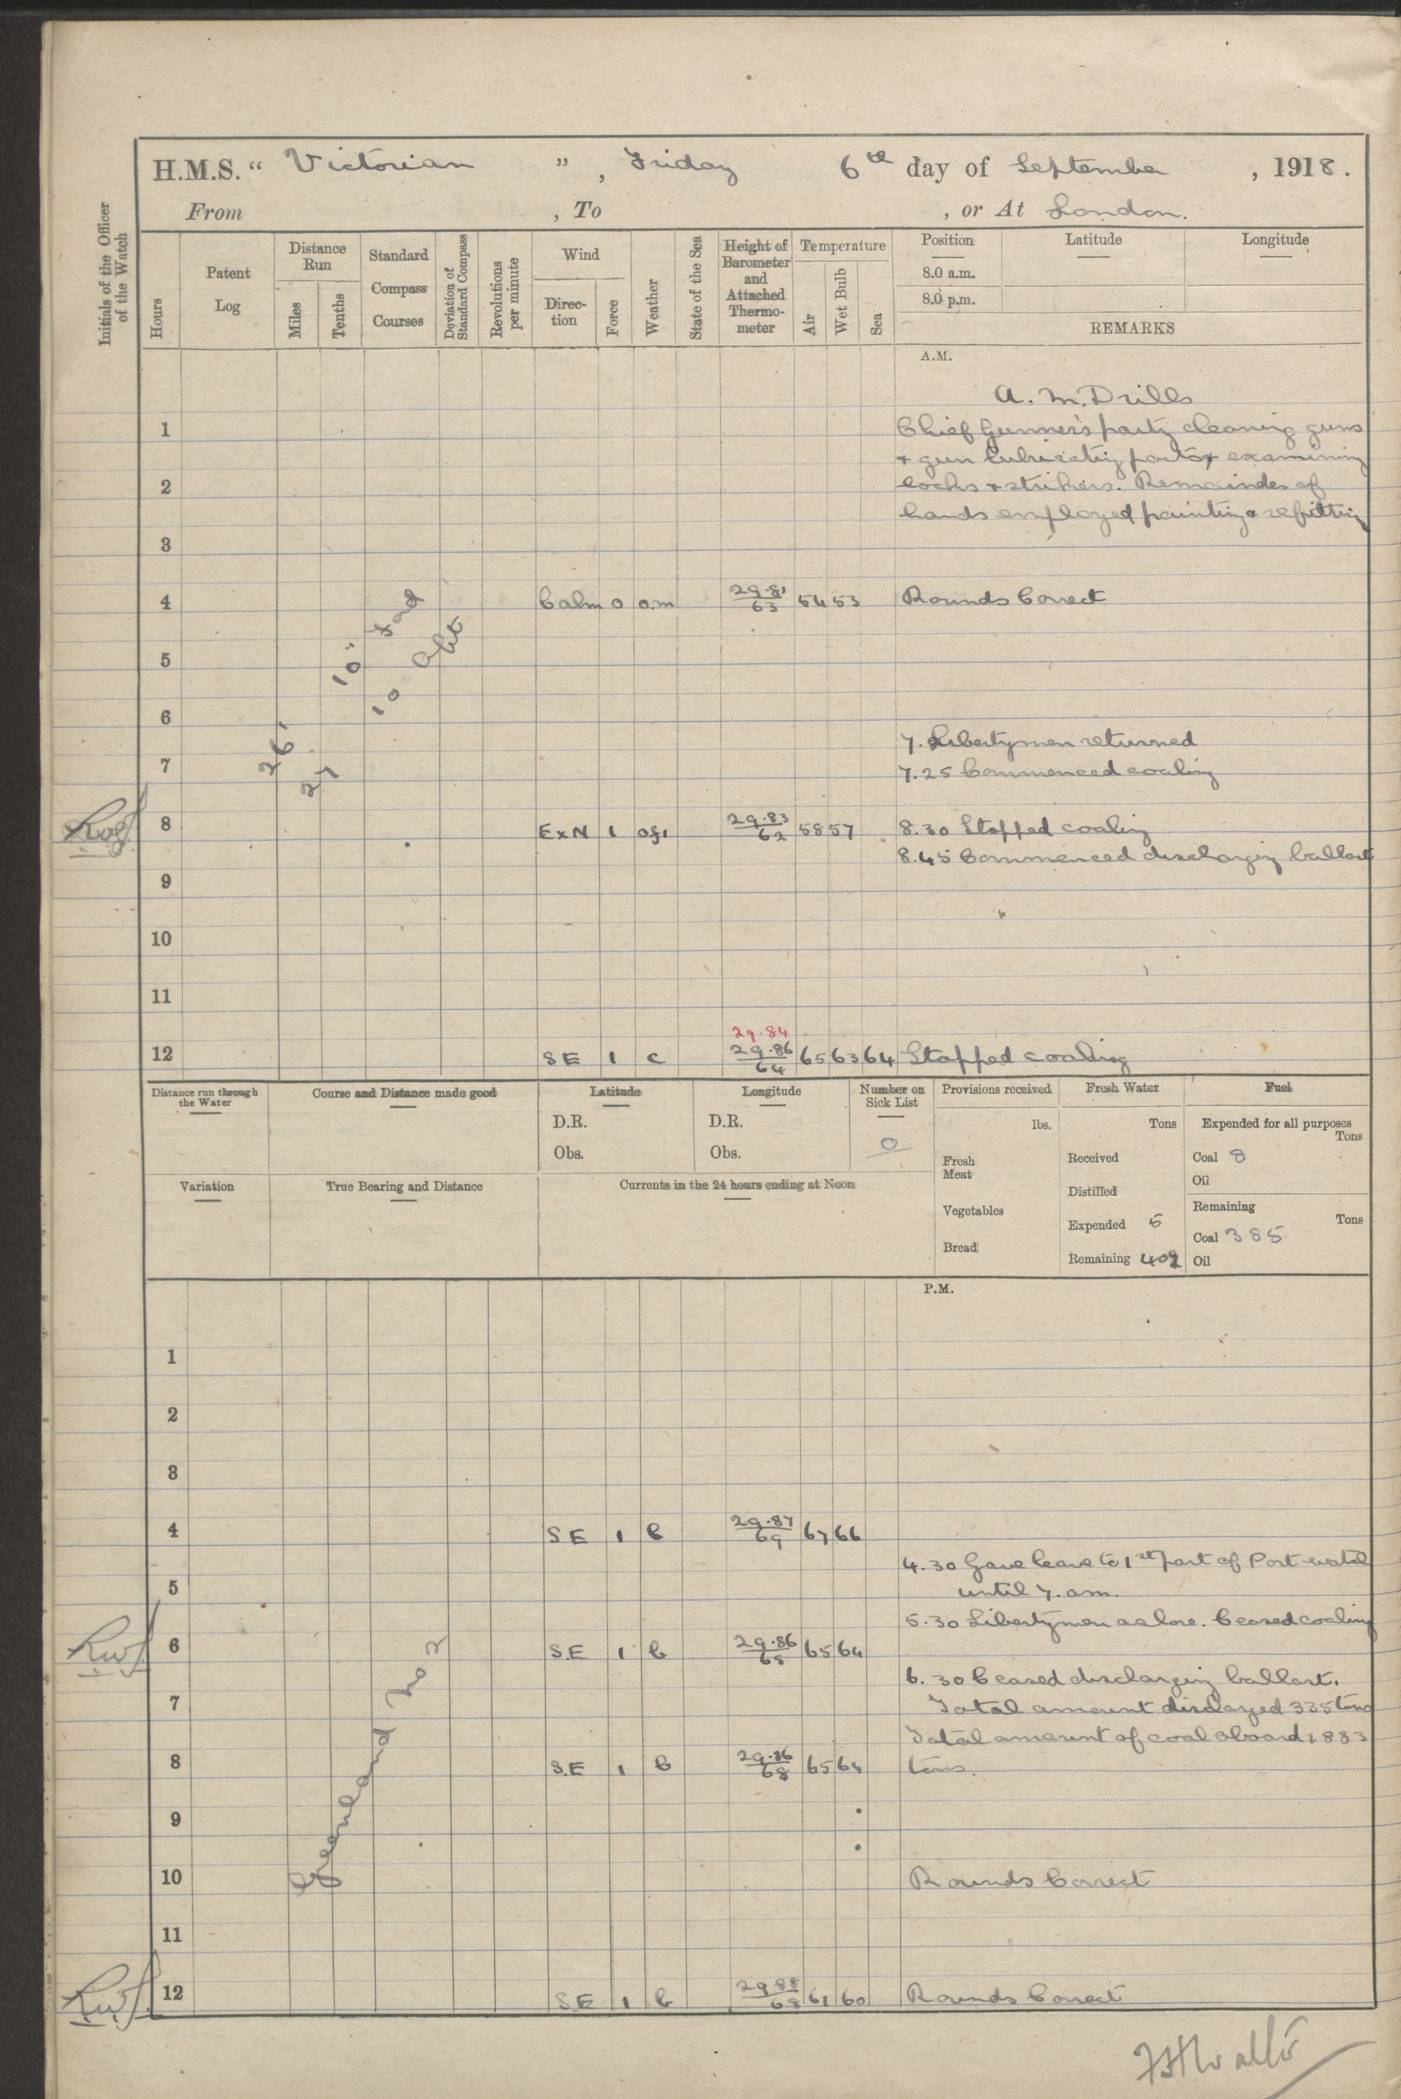 H.M.S. “ Victorian ”, Friday 6th day of September , 1918.
From , To , or At London.
Initials of the Officer of the Watch
Hours
Patent Log
Distance Run
Miles
Tenths
Standard Compass Courses
Deviation of Standard Compass
Revolutions per minute
Wind
Direc- tion
Force
Weather
State of the Sea
Height of Barometer and Attached Thermo- meter
Temperature
Air
Wet Bulb
Sea
Position Latitude Longitude
8.0 a.m.
8.0 p.m.
REMARKS
A.M.
A.M. Drills
1 Chief Gunner's party cleaning guns
+ gun lubricating parts + examining
2 locks + strikers. Remainder of
hands employed painting + refitting
3
4 Calm 0 o.m 29.81/63 54 53 Rounds Correct
10" Ford
5
10 Aft
6
26'
7. Libertymen returned
7 7.25 Commenced coaling
27
8 ExN 1 29.83/62 58 57 8.30 Stopped coaling
8.45 Commenced discharging ballast
9
10
11
29.84
12 SE 1 c 29.86/64 65 63 64 Stopped coaling
Distance run through the Water
Course and Distance made good
Latitude
D.R.
Obs.
Longitude
D.R.
Obs.
Number on Sick List
0
Provisions received
lbs.
Fresh Meat
Vegetables
Bread
Fresh Water
Tons
Received
Distilled
Expended 5
Remaining 409
Fuel
Expended for all purposes
Tons
Coal 8
Oil
Remaining
Tons
Coal 385
Oil
Variation
True Bearing and Distance
Currents in the 24 hours ending at Noon
P.M.
1
2
3
4 SE 1 b 29.87/69 67 66
4.30 Gave leave to 1st part of Port watch
5 until 7. am.
5.30 Libertymen ashore. Ceased coaling
6 S.E 1 b 29.86/68 65 64
6.30 Ceased discharging ballast.
7 Total amount discharged 335 tons
Total amount of coal aboard 1883
8 S.E 1 b 29.86/68 65 64 tons.
9
Greenland No 2
10 Rounds Correct
11
12 SE 1 b 29.88/68 61 60 Rounds Correct